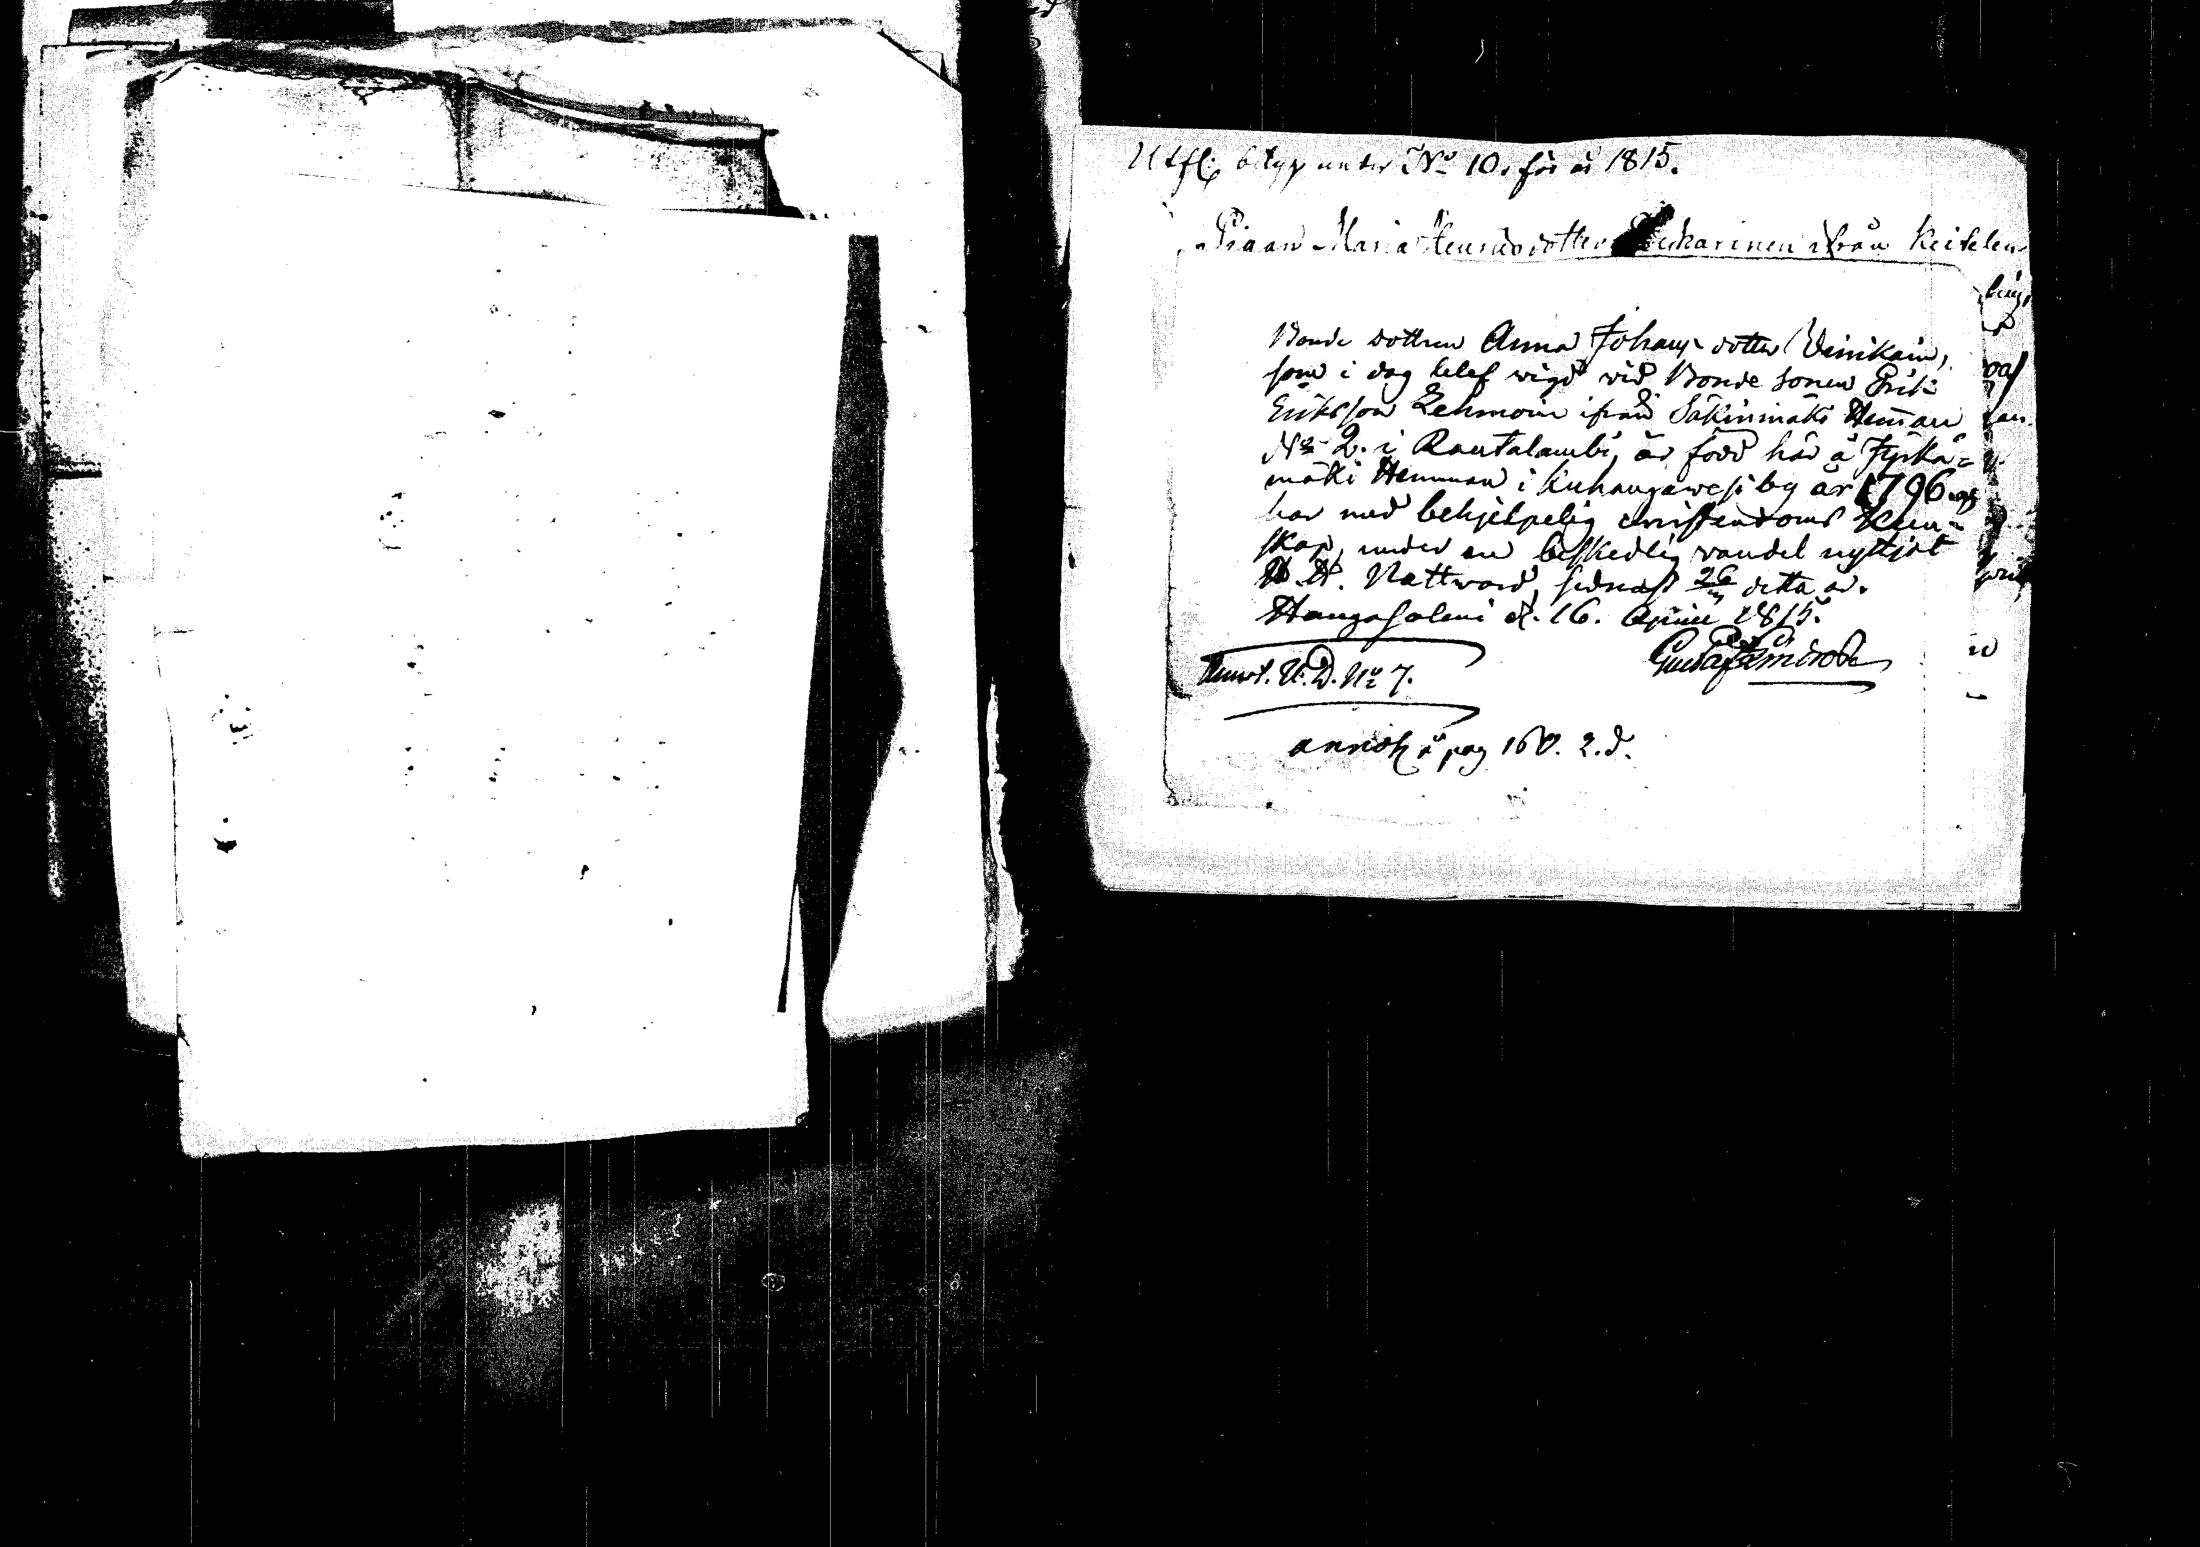 Utfl: betyg under No 10. för år 1815.
Pigan Maria Henricsdotter ifrån Keitelen
Bonde dottren Anna Johans dotter Winikain,
som i dag blef wigd wid Bonde sonen Erik
Eriksson Lehmoin ifrån Säkinmäki Hem̄an
No 2. i Rautalambi, är född här å Jyrkä=
mäki Hemman i Kuhangawesi by år 1796. och
har med behjelpelig christendoms Kun=
skap, under en beskedlig wandel nyttjat
H. H. Nattward, sednast 26 detta år.
Hangasalmi d. 16. Aprill 1815.
Gustaf
Annot. U. D. No 7.
annoth å pag 160. 2.d.